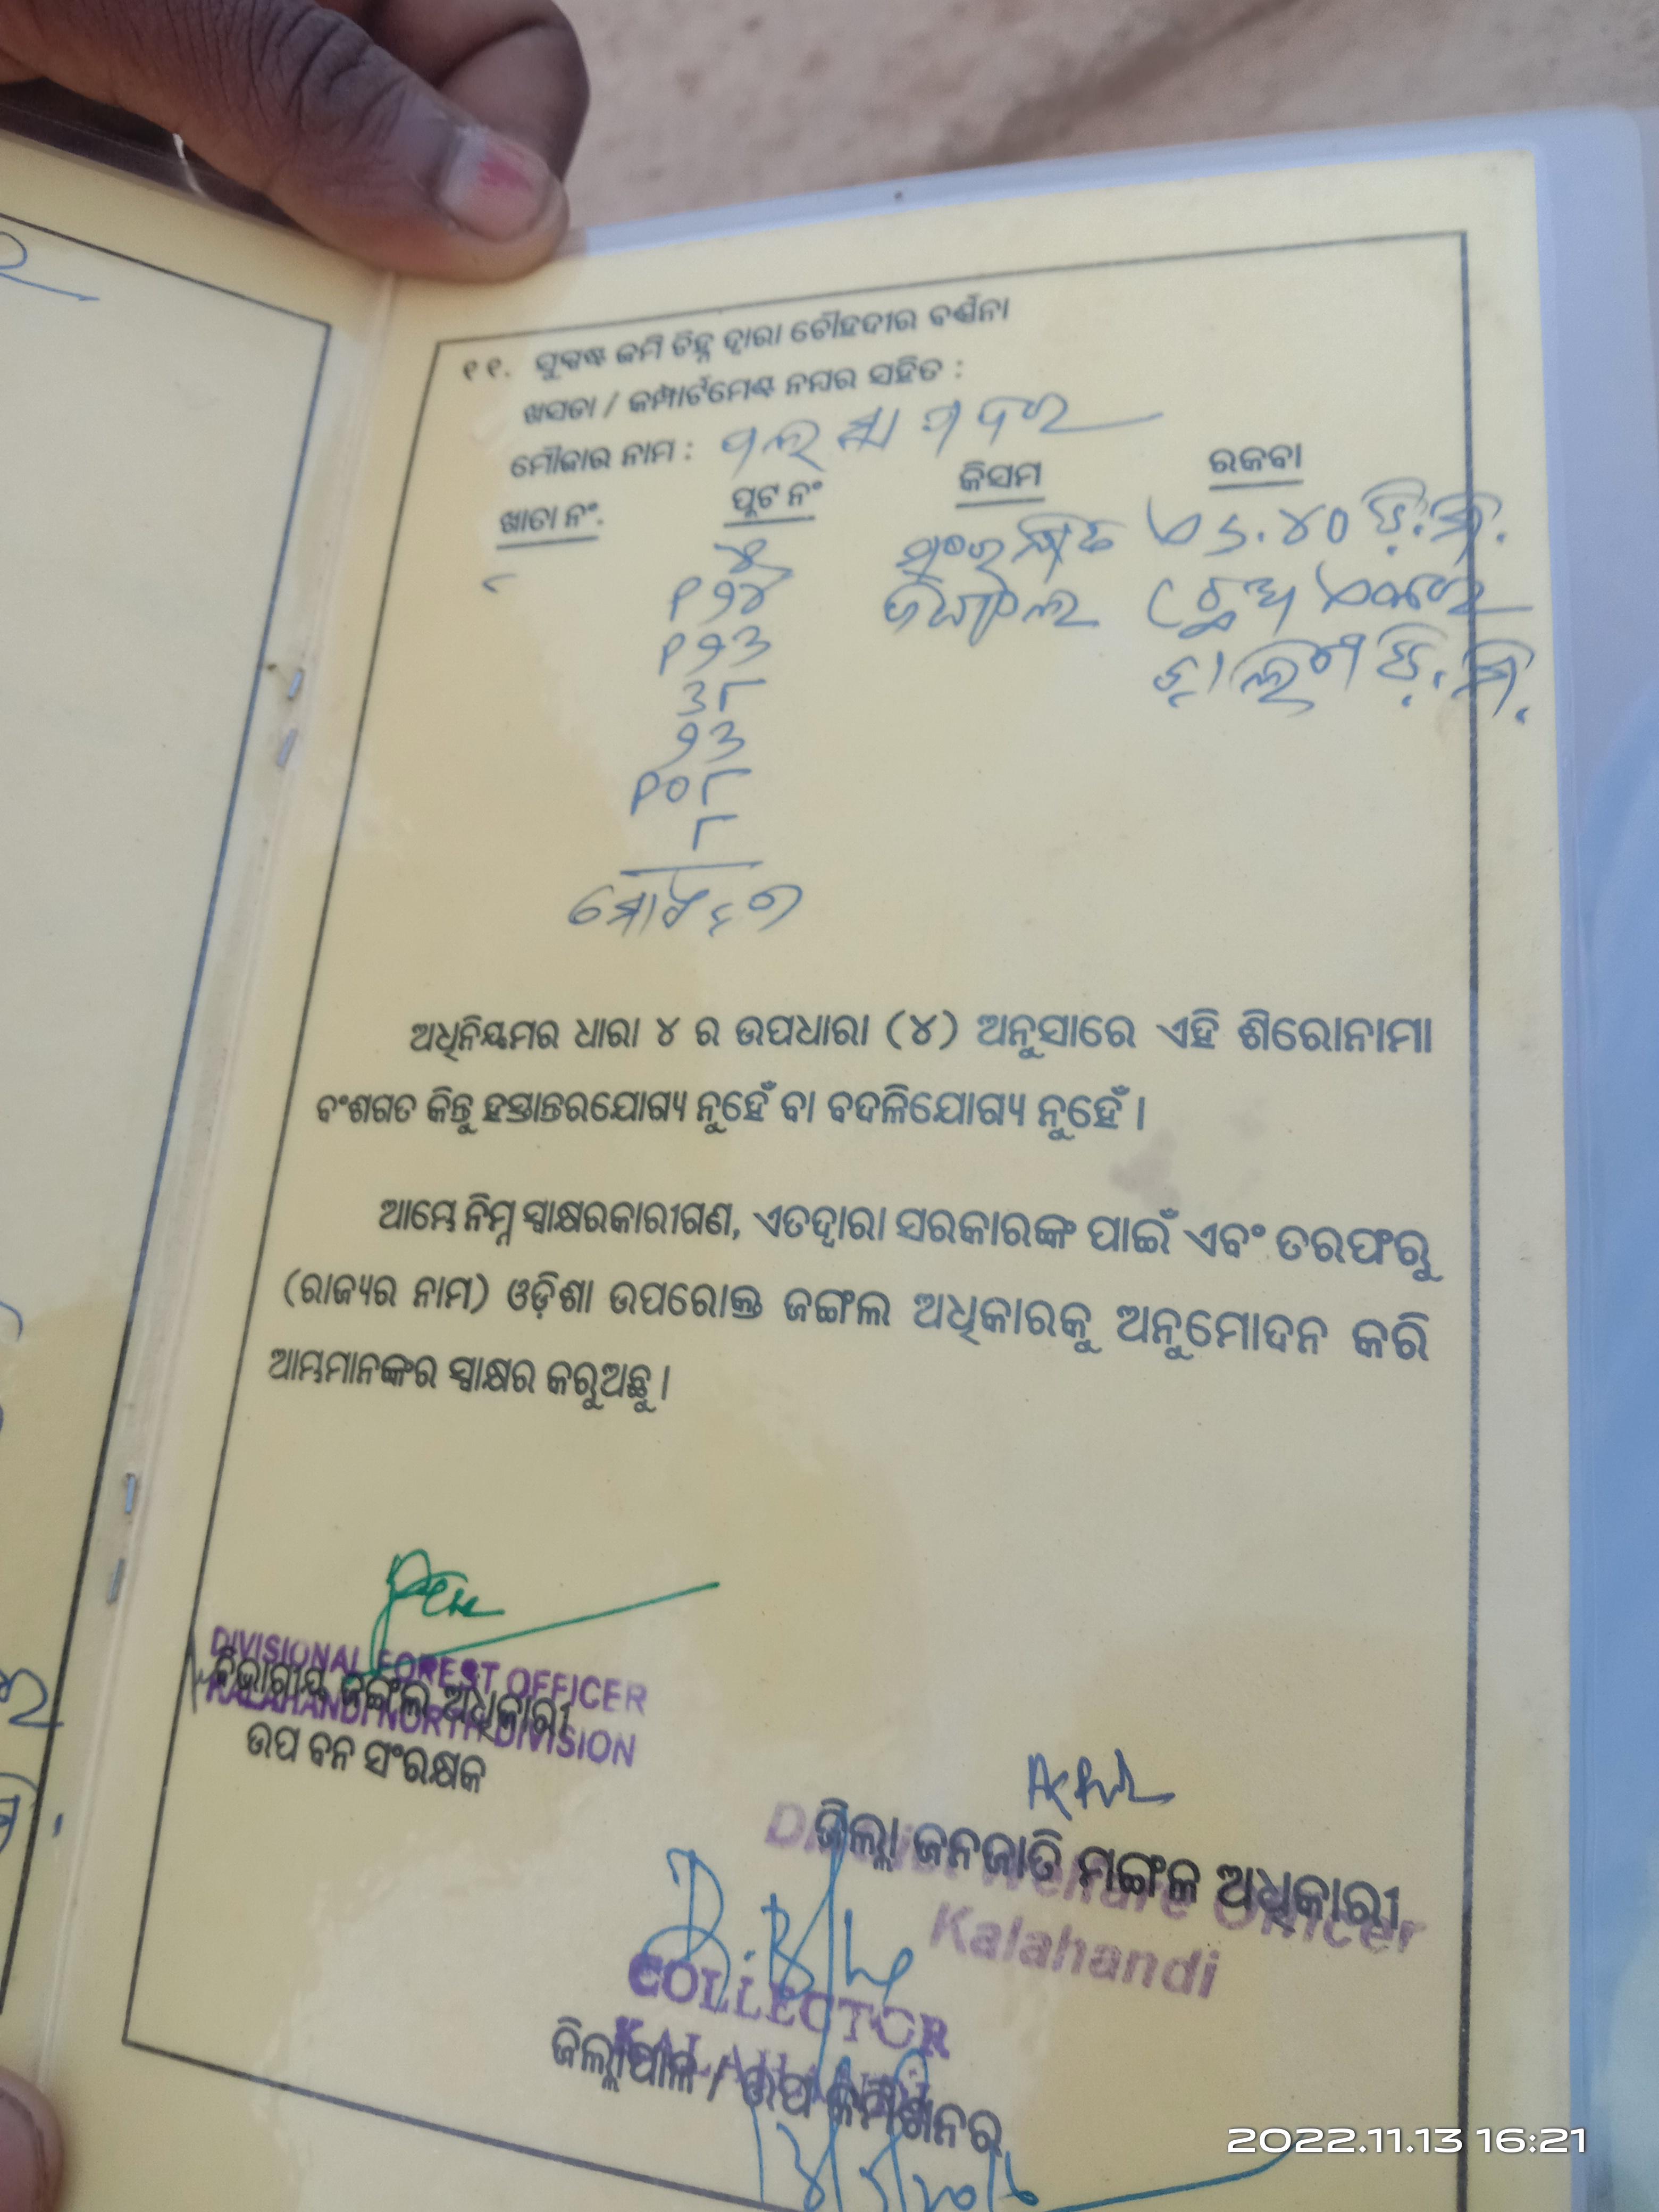 ୧୧. ସୁସ୍ପଷ୍ଟ ଜମି ଚିହ୍ନ ଦ୍ୱାରା ଚୌହଦୀର ବର୍ଣ୍ଣନା
ଖସଡା / କମ୍ପାର୍ଟମେଣ୍ଟ ନମ୍ବର ସହିତ :
ମୌଜାର ନାମ :
ଖାତା ନଂ. ପ୍ଲଟ ନଂ କିସମ ରକବା
୪ ସଂରକ୍ଷିତ
୧୨୪ ଜଙ୍ଗଲ
୧୨୩ ଚାଳିଶ ଡ଼ି.ମି.
୩୮
୨୩
୧୦୮
୮
ଅଧିନିୟମର ଧାରା ୪ ର ଉପଧାରା (୪) ଅନୁସାରେ ଏହି ଶିରୋନାମା
ବଂଶଗତ କିନ୍ତୁ ହସ୍ତାନ୍ତରଯୋଗ୍ୟ ନୁହେଁ ବା ବଦଳିଯୋଗ୍ୟ ନୁହେଁ ।
ଆମ୍ଭେ ନିମ୍ନ ସ୍ୱାକ୍ଷରକାରୀଗଣ, ଏତଦ୍ୱାରା ସରକାରଙ୍କ ପାଇଁ ଏବଂ ତରଫରୁ
(ରାଜ୍ୟର ନାମ) ଓଡ଼ିଶା ଉପରୋକ୍ତ ଜଙ୍ଗଲ ଅଧିକାରକୁ ଅନୁମୋଦନ କରି
ଆମ୍ଭମାନଙ୍କର ସ୍ୱାକ୍ଷର କରୁଅଛୁ ।
DIVISIONAL FOREST OFFICER
ବିଭାଗୀୟ ଜଙ୍ଗଲ ଅଧିକାରୀ
KALAHANDI NORTH DIVISION
ଉପ ବନ ସଂରକ୍ଷକ
ଜିଲ୍ଲା ଜନଜାତି ମଙ୍ଗଳ ଅଧିକାରୀ
District Welfare Officer
Kalahandi
COLLECTOR
KALAHANDI
ଜିଲ୍ଲାପାଳ / ଉପ କମିଶନର
2022.11.13 16:21